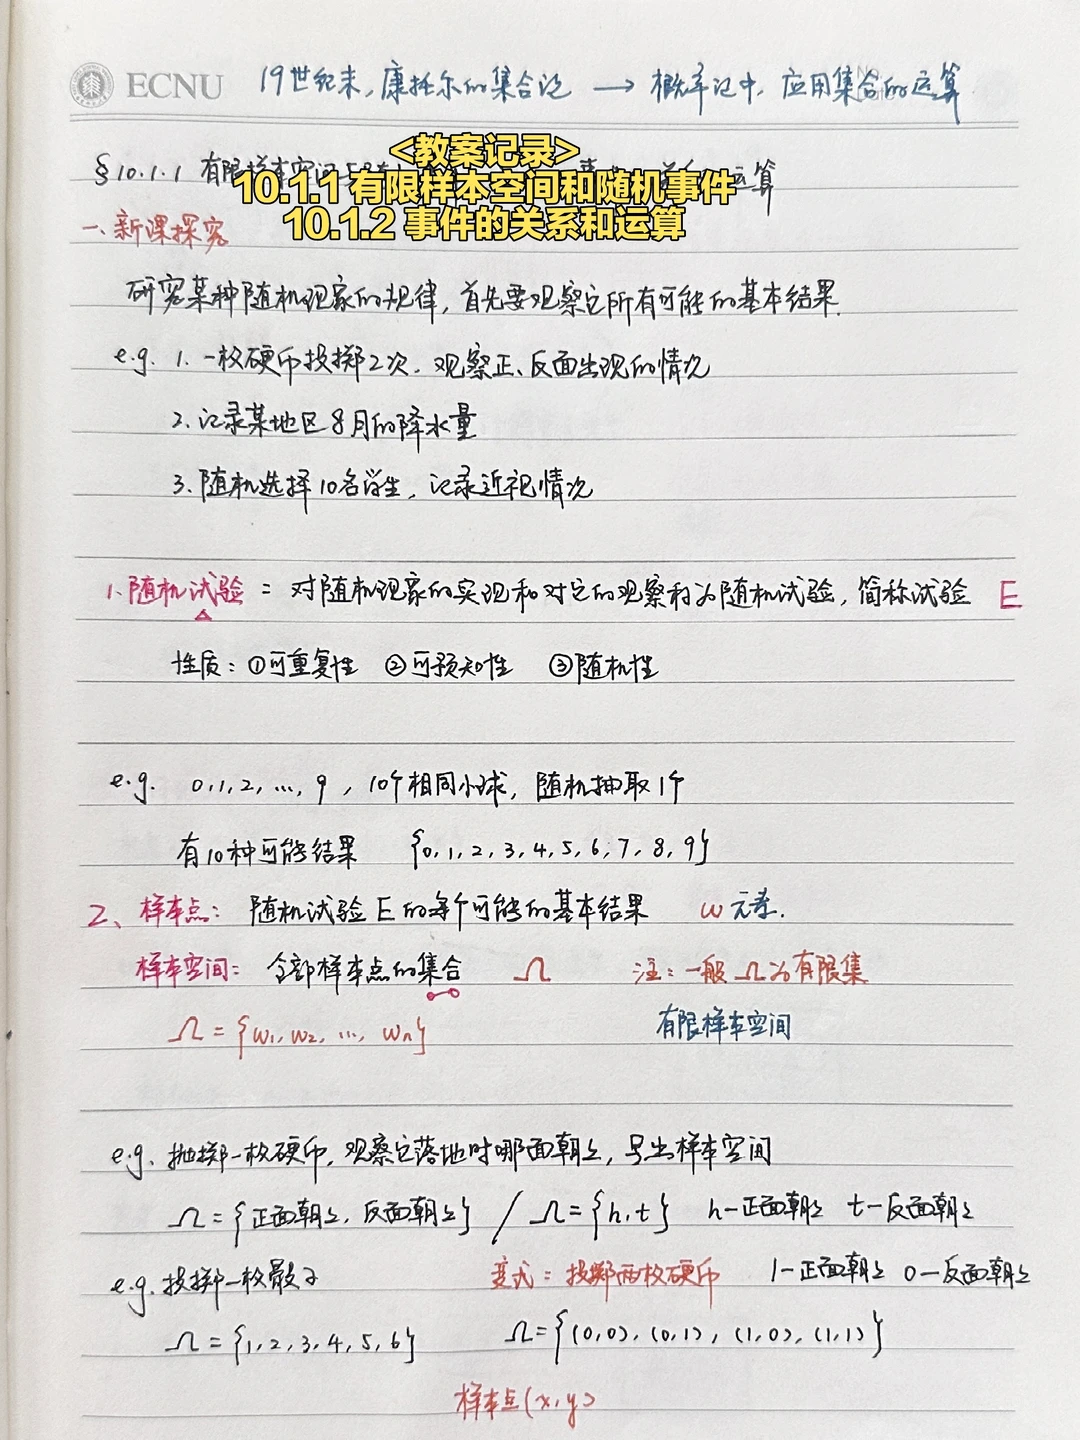 ECNU 19世纪末,康托尔的集合论 → 概率论中,应用集合的运算
<教案记录>
§10.1.1 有限样本空间 运算
10.1.1 有限样本空间和随机事件
10.1.2 事件的关系和运算
一、新课探究
研究某种随机现象的规律,首先要观察它所有可能的基本结果.
e.g. 1. 一枚硬币投掷2次,观察正、反面出现的情况
2. 记录某地区8月的降水量
3. 随机选择10名学生,记录近视情况
1. 随机试验 = 对随机现象的实现和对它的观察称为随机试验,简称试验 E
性质:①可重复性 ②可预知性 ③随机性
e.g. 0,1,2,…,9,10个相同小球,随机抽取1个
有10种可能结果 {0,1,2,3,4,5,6,7,8,9}
2、样本点:随机试验E的每个可能的基本结果 ω 元素.
样本空间:全部样本点的集合 Ω 注:一般Ω为有限集
Ω={ω₁,ω₂,…,ωn} 有限样本空间
e.g. 抛掷一枚硬币,观察它落地时哪面朝上,写出样本空间
Ω={正面朝上,反面朝上} / Ω={h,t} h—正面朝上 t—反面朝上
e.g. 投掷一枚骰子 变式:投掷两枚硬币 1—正面朝上 0—反面朝上
Ω={1,2,3,4,5,6} Ω={(0,0),(0,1),(1,0),(1,1)}
样本点(x,y)